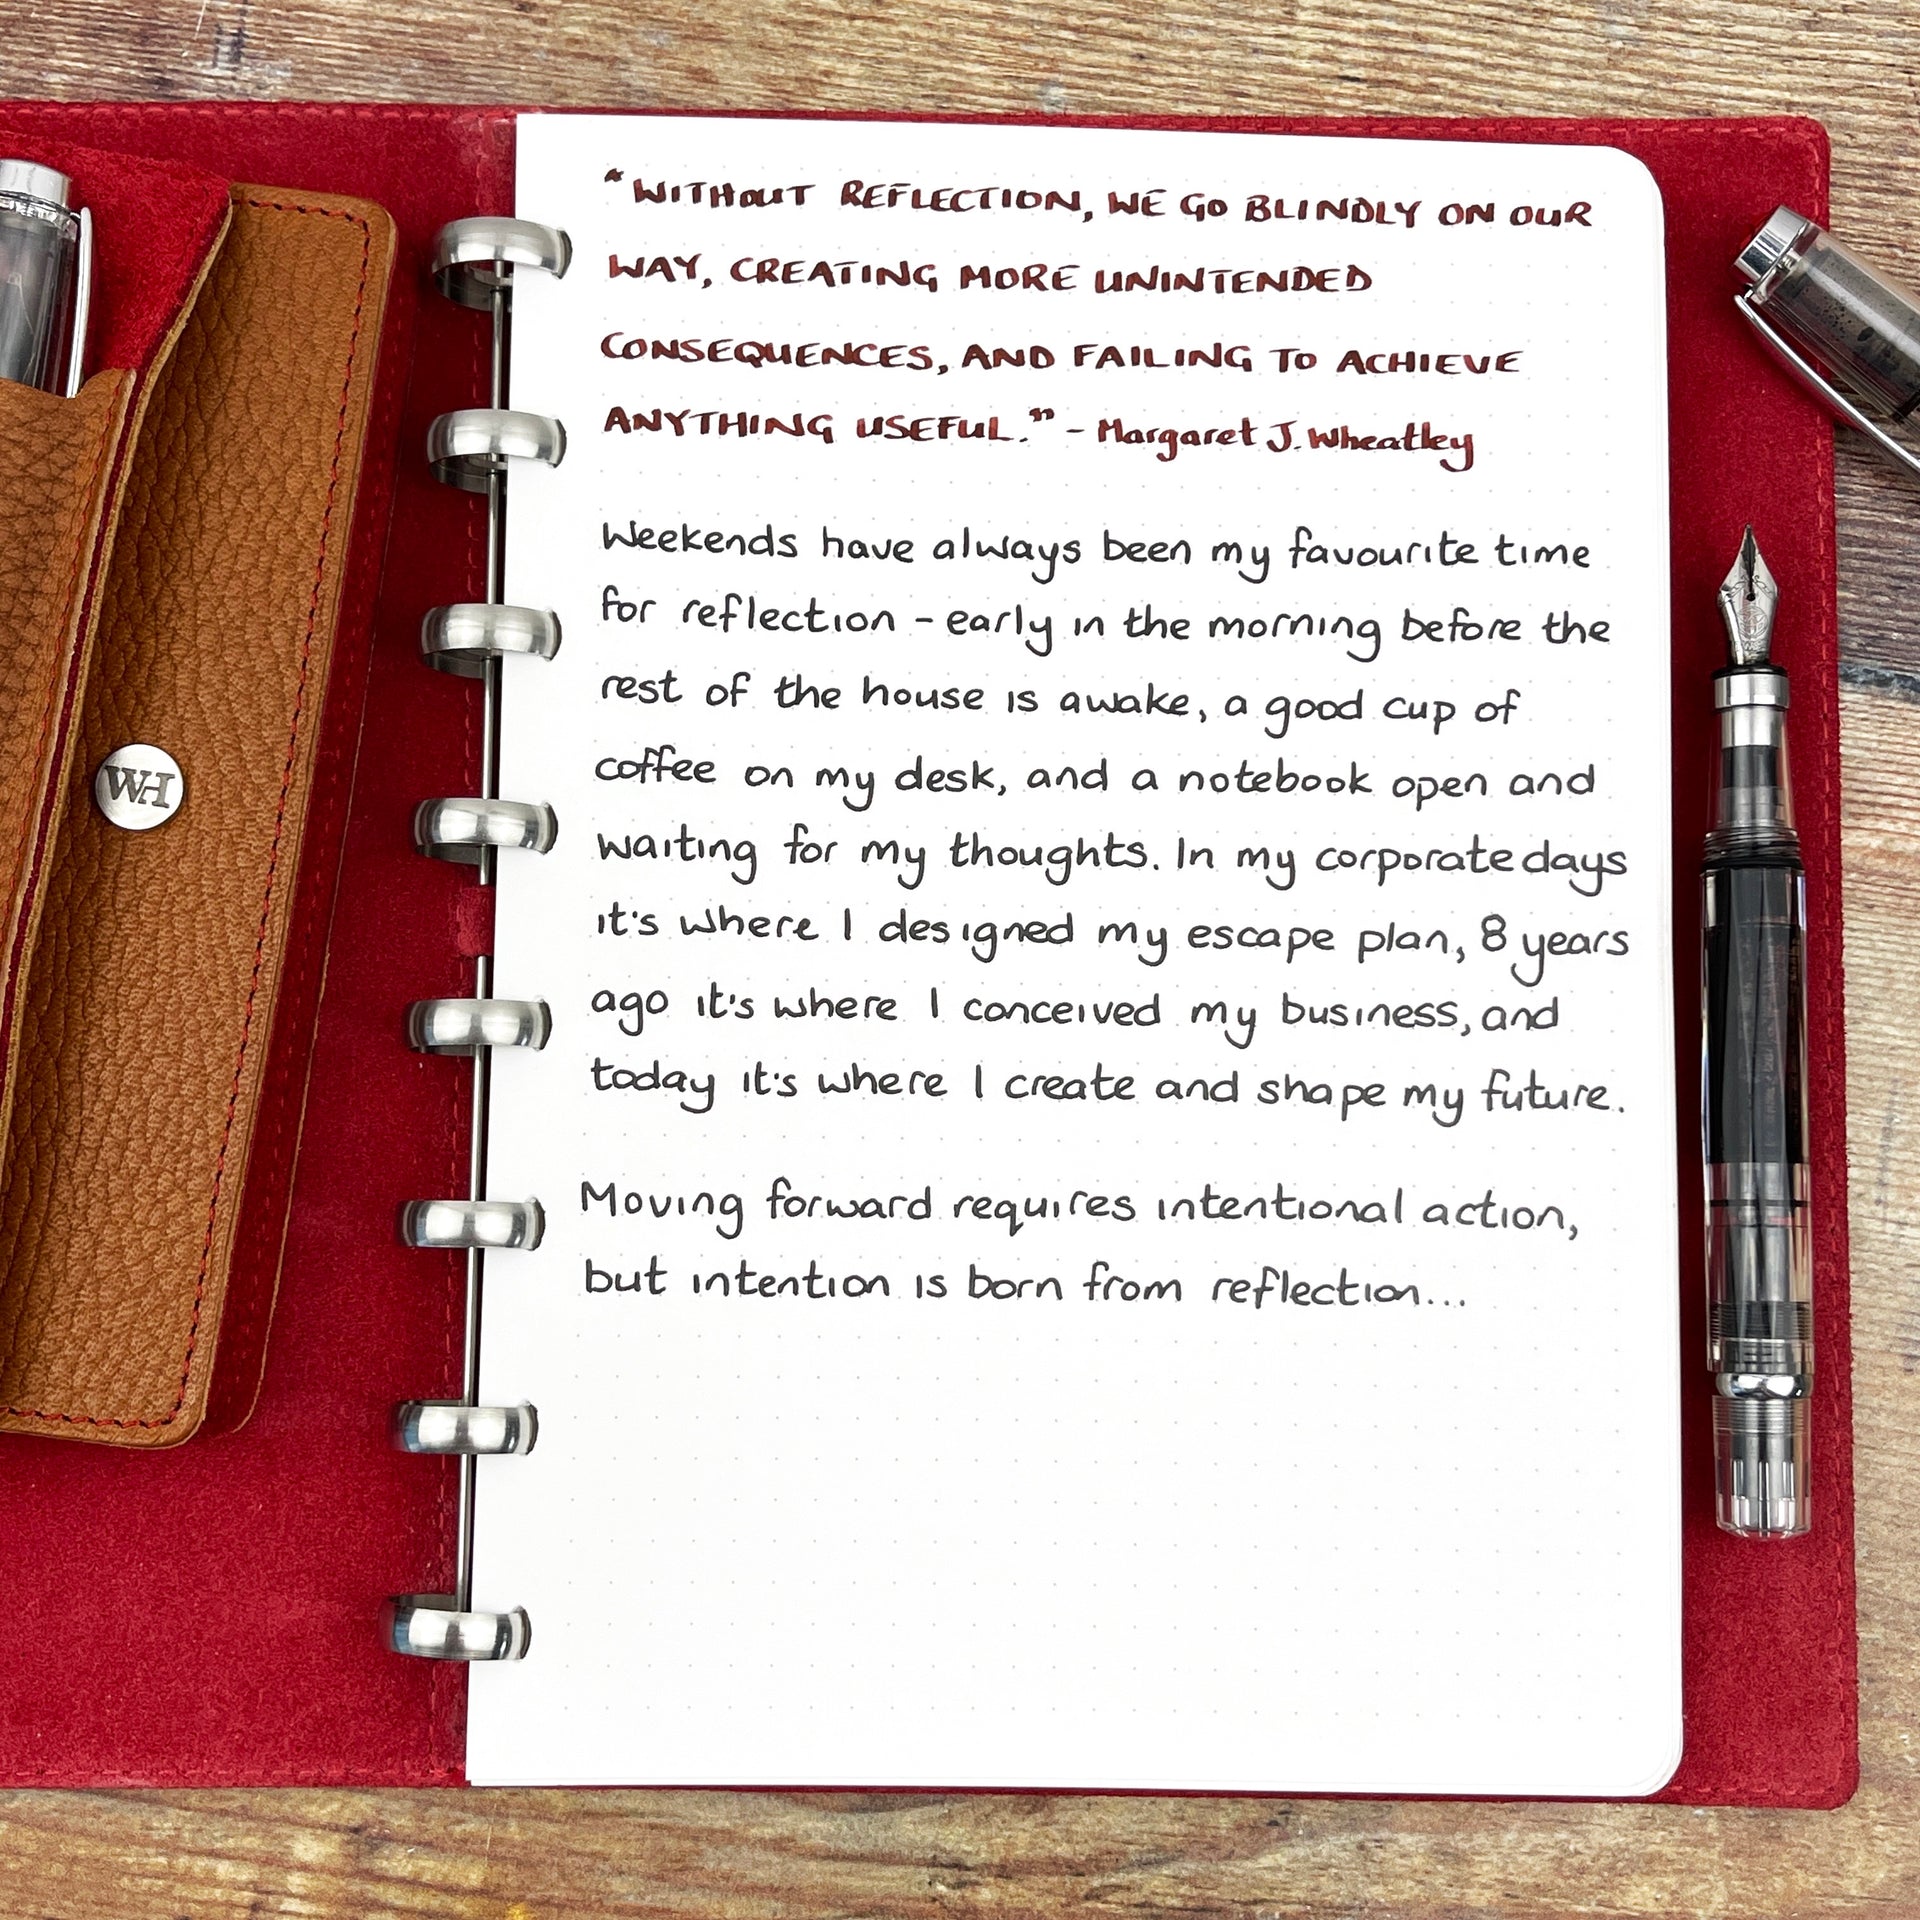 WH
"WITHOUT REFLECTION, WE GO BLINDLY ON OUR
WAY, CREATING MORE UNINTENDED
CONSEQUENCES, AND FAILING TO ACHIEVE
ANYTHING USEFUL." - Margaret J. Wheatley
Weekends have always been my favourite time
for reflection - early in the morning before the
rest of the house is awake, a good cup of
coffee on my desk, and a notebook open and
waiting for my thoughts. In my corporate days
it's where I designed my escape plan, 8 years
ago it's where I conceived my business, and
today it's where I create and shape my future.
Moving forward requires intentional action,
but intention is born from reflection...